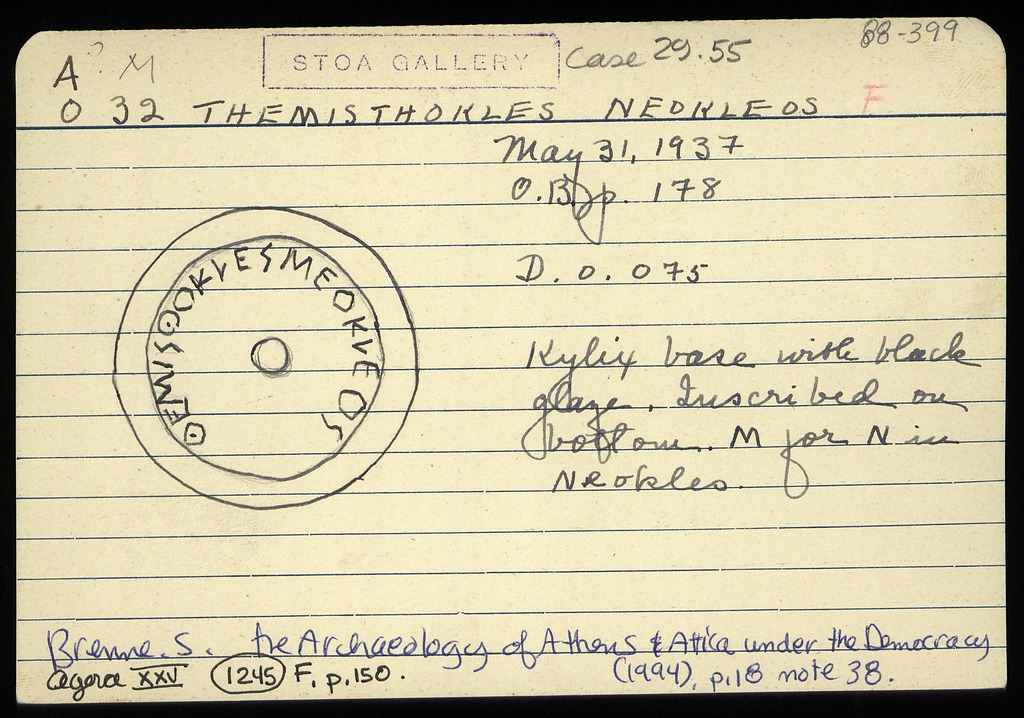 A ? M STOA GALLERY Case 29.55 88-399
O 32 THEMISTHOKLES NEOKLEOS F
May 31, 1937
O.B. p. 178
D. 0. 075
ΘΕΜΙSΘΟΚVΕS ΜΕΟΚVΕΟS
Kylix base with black
glaze. Inscribed on
bottom. M for N in
Neokles.
Brenne. S. the Archaeology of Athens & Attica under the Democracy
(1994), p.18 note 38.
Agora XXV 1245 F, p.150.